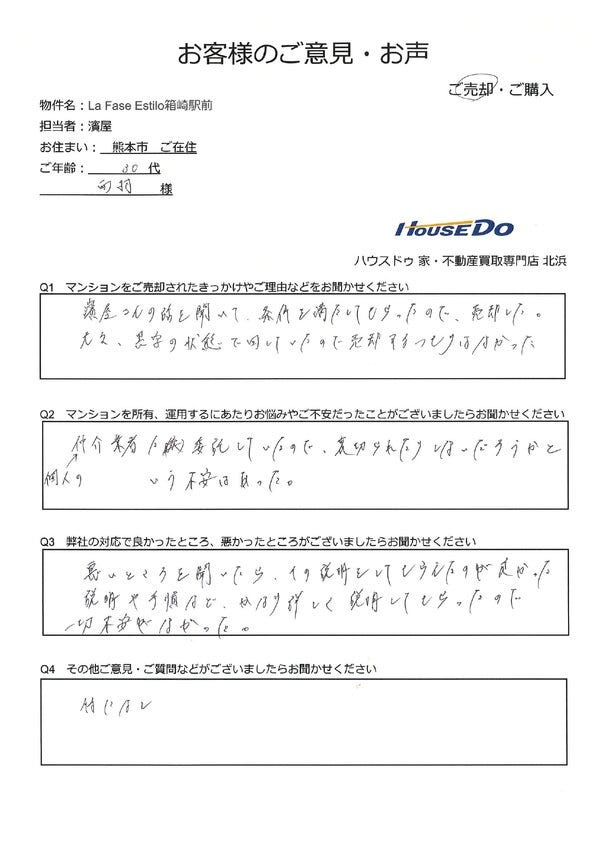 お客様のご意見・お声
ご売却・ご購入
物件名：La Fase Estilo箱崎駅前
担当者：濱屋
お住まい： 熊本市 ご在住
ご年齢： 30 代
様
HOUSEDO
ハウスドゥ 家・不動産買取専門店 北浜
Q1 マンションをご売却されたきっかけやご理由などをお聞かせください
濱屋さんの話を聞いて、条件を満たしてもらったので、売却した。
元々、黒字の状態で回していたので売却するつもりはなかった
Q2 マンションを所有、運用するにあたりお悩みやご不安だったことがございましたらお聞かせください
仲介業者に 委託していたので、裏切られたりしないだろうかと
個人の いう不安はあった。
Q3 弊社の対応で良かったところ、悪かったところがございましたらお聞かせください
悪いところを聞いたら、その説明をしてもらえたのが良かった
説明や手順など、かなり詳しく説明してもらったので
一切不安がなかった。
Q4 その他ご意見・ご質問などがございましたらお聞かせください
特になし